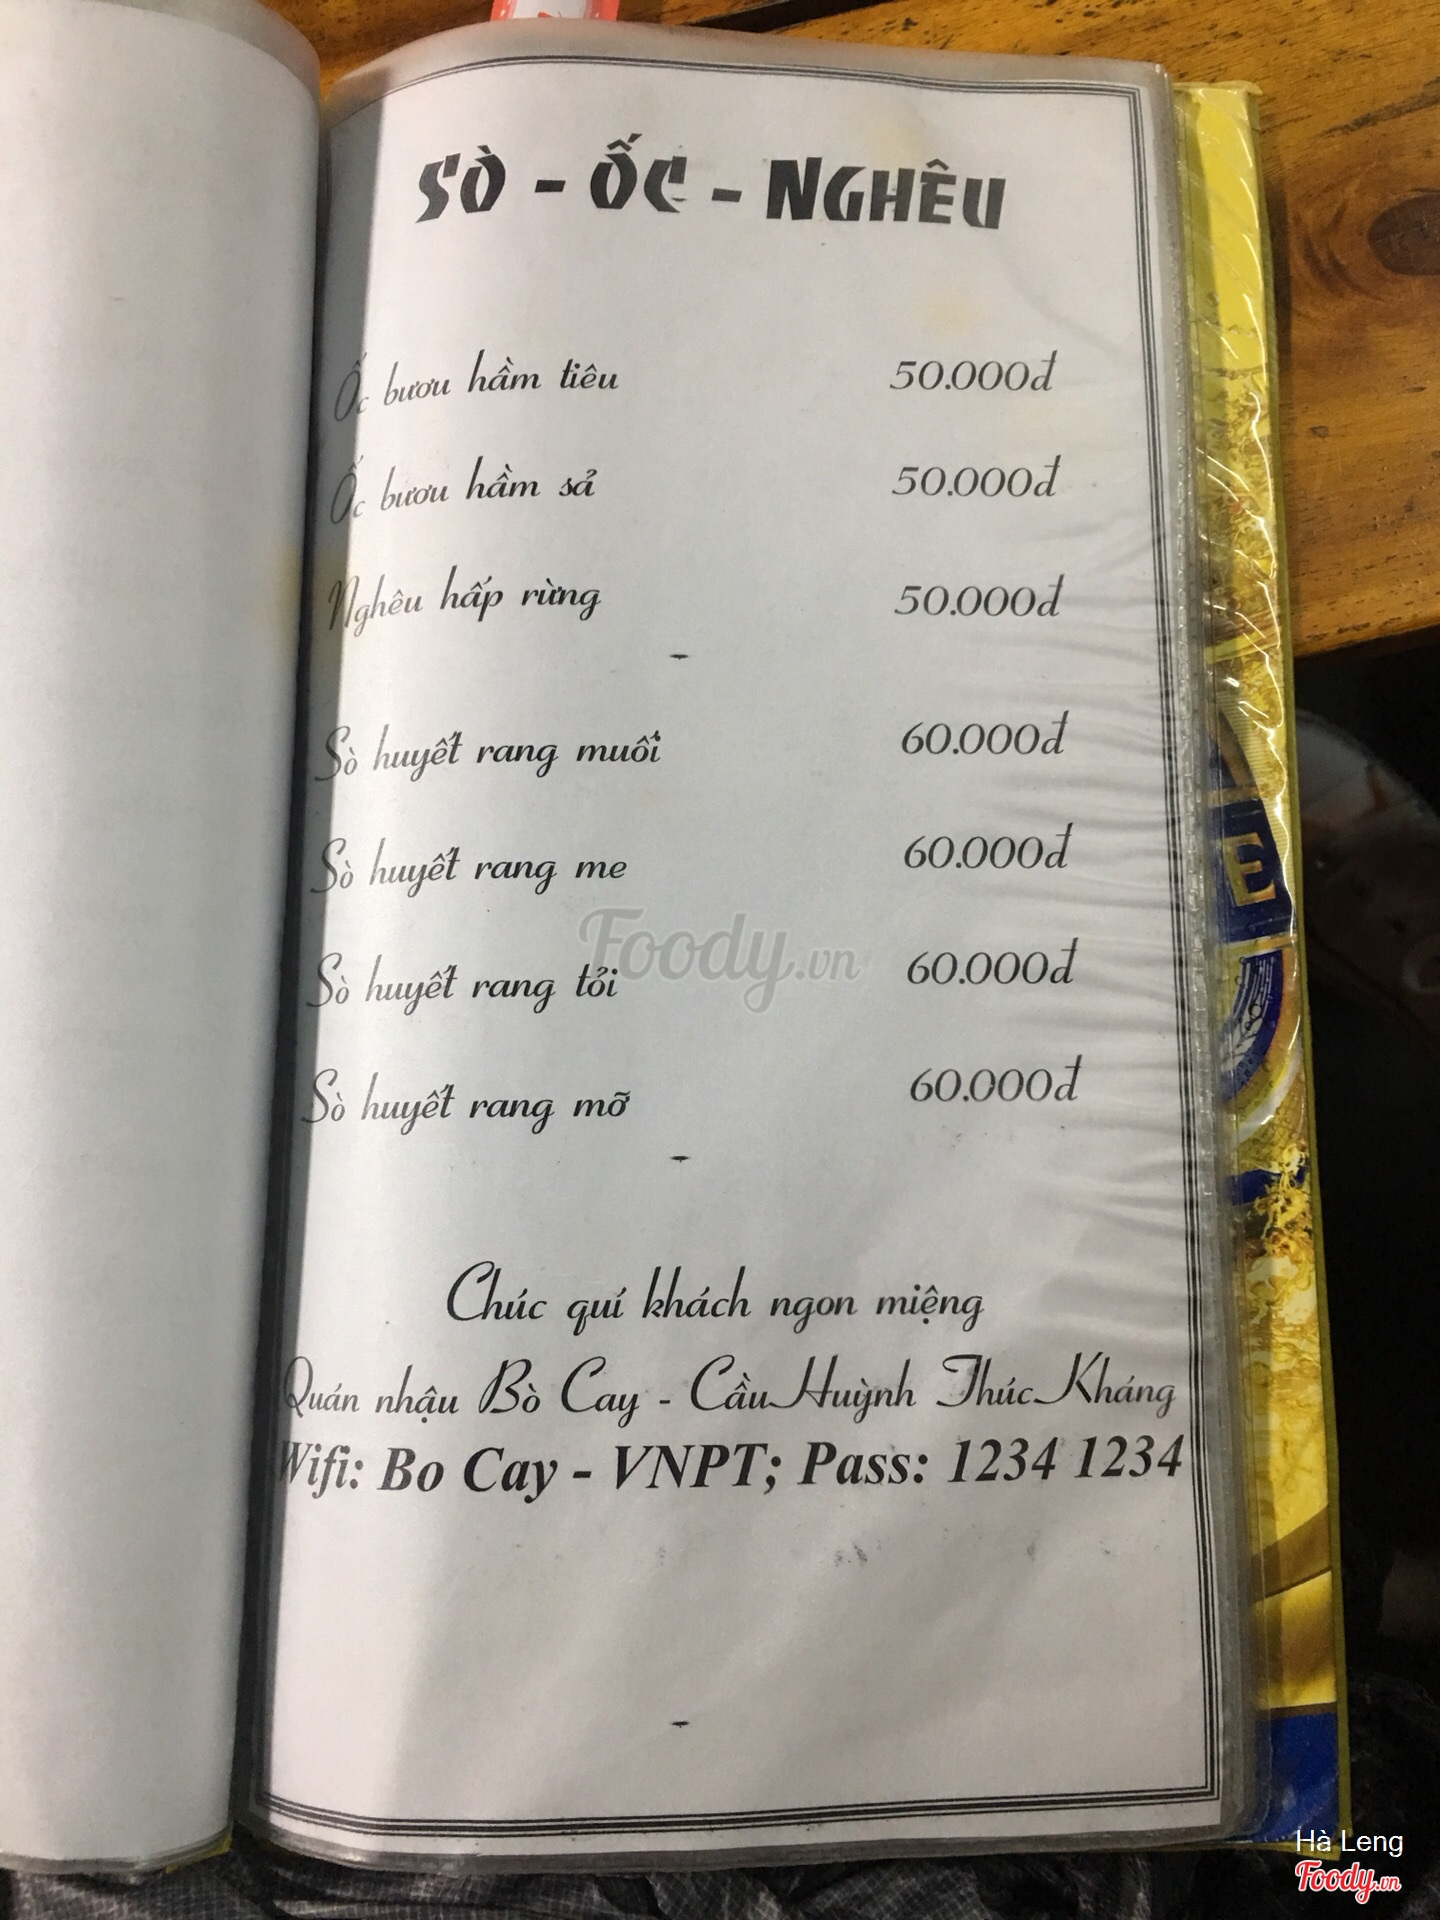 SÒ - ỐC - NGHÊU
Ốc bươu hầm tiêu 50.000đ
Ốc bươu hầm sả 50.000đ
Nghêu hấp rừng 50.000đ
Sò huyết rang muối 60.000đ
Sò huyết rang me 60.000đ
Foody.vn
Sò huyết rang tỏi 60.000đ
Sò huyết rang mỡ 60.000đ
Chúc quí khách ngon miệng
Quán nhậu Bò Cay - Cầu Huỳnh Thúc Kháng
Wifi: Bo Cay - VNPT; Pass: 1234 1234
Hà Leng
Foody.vn